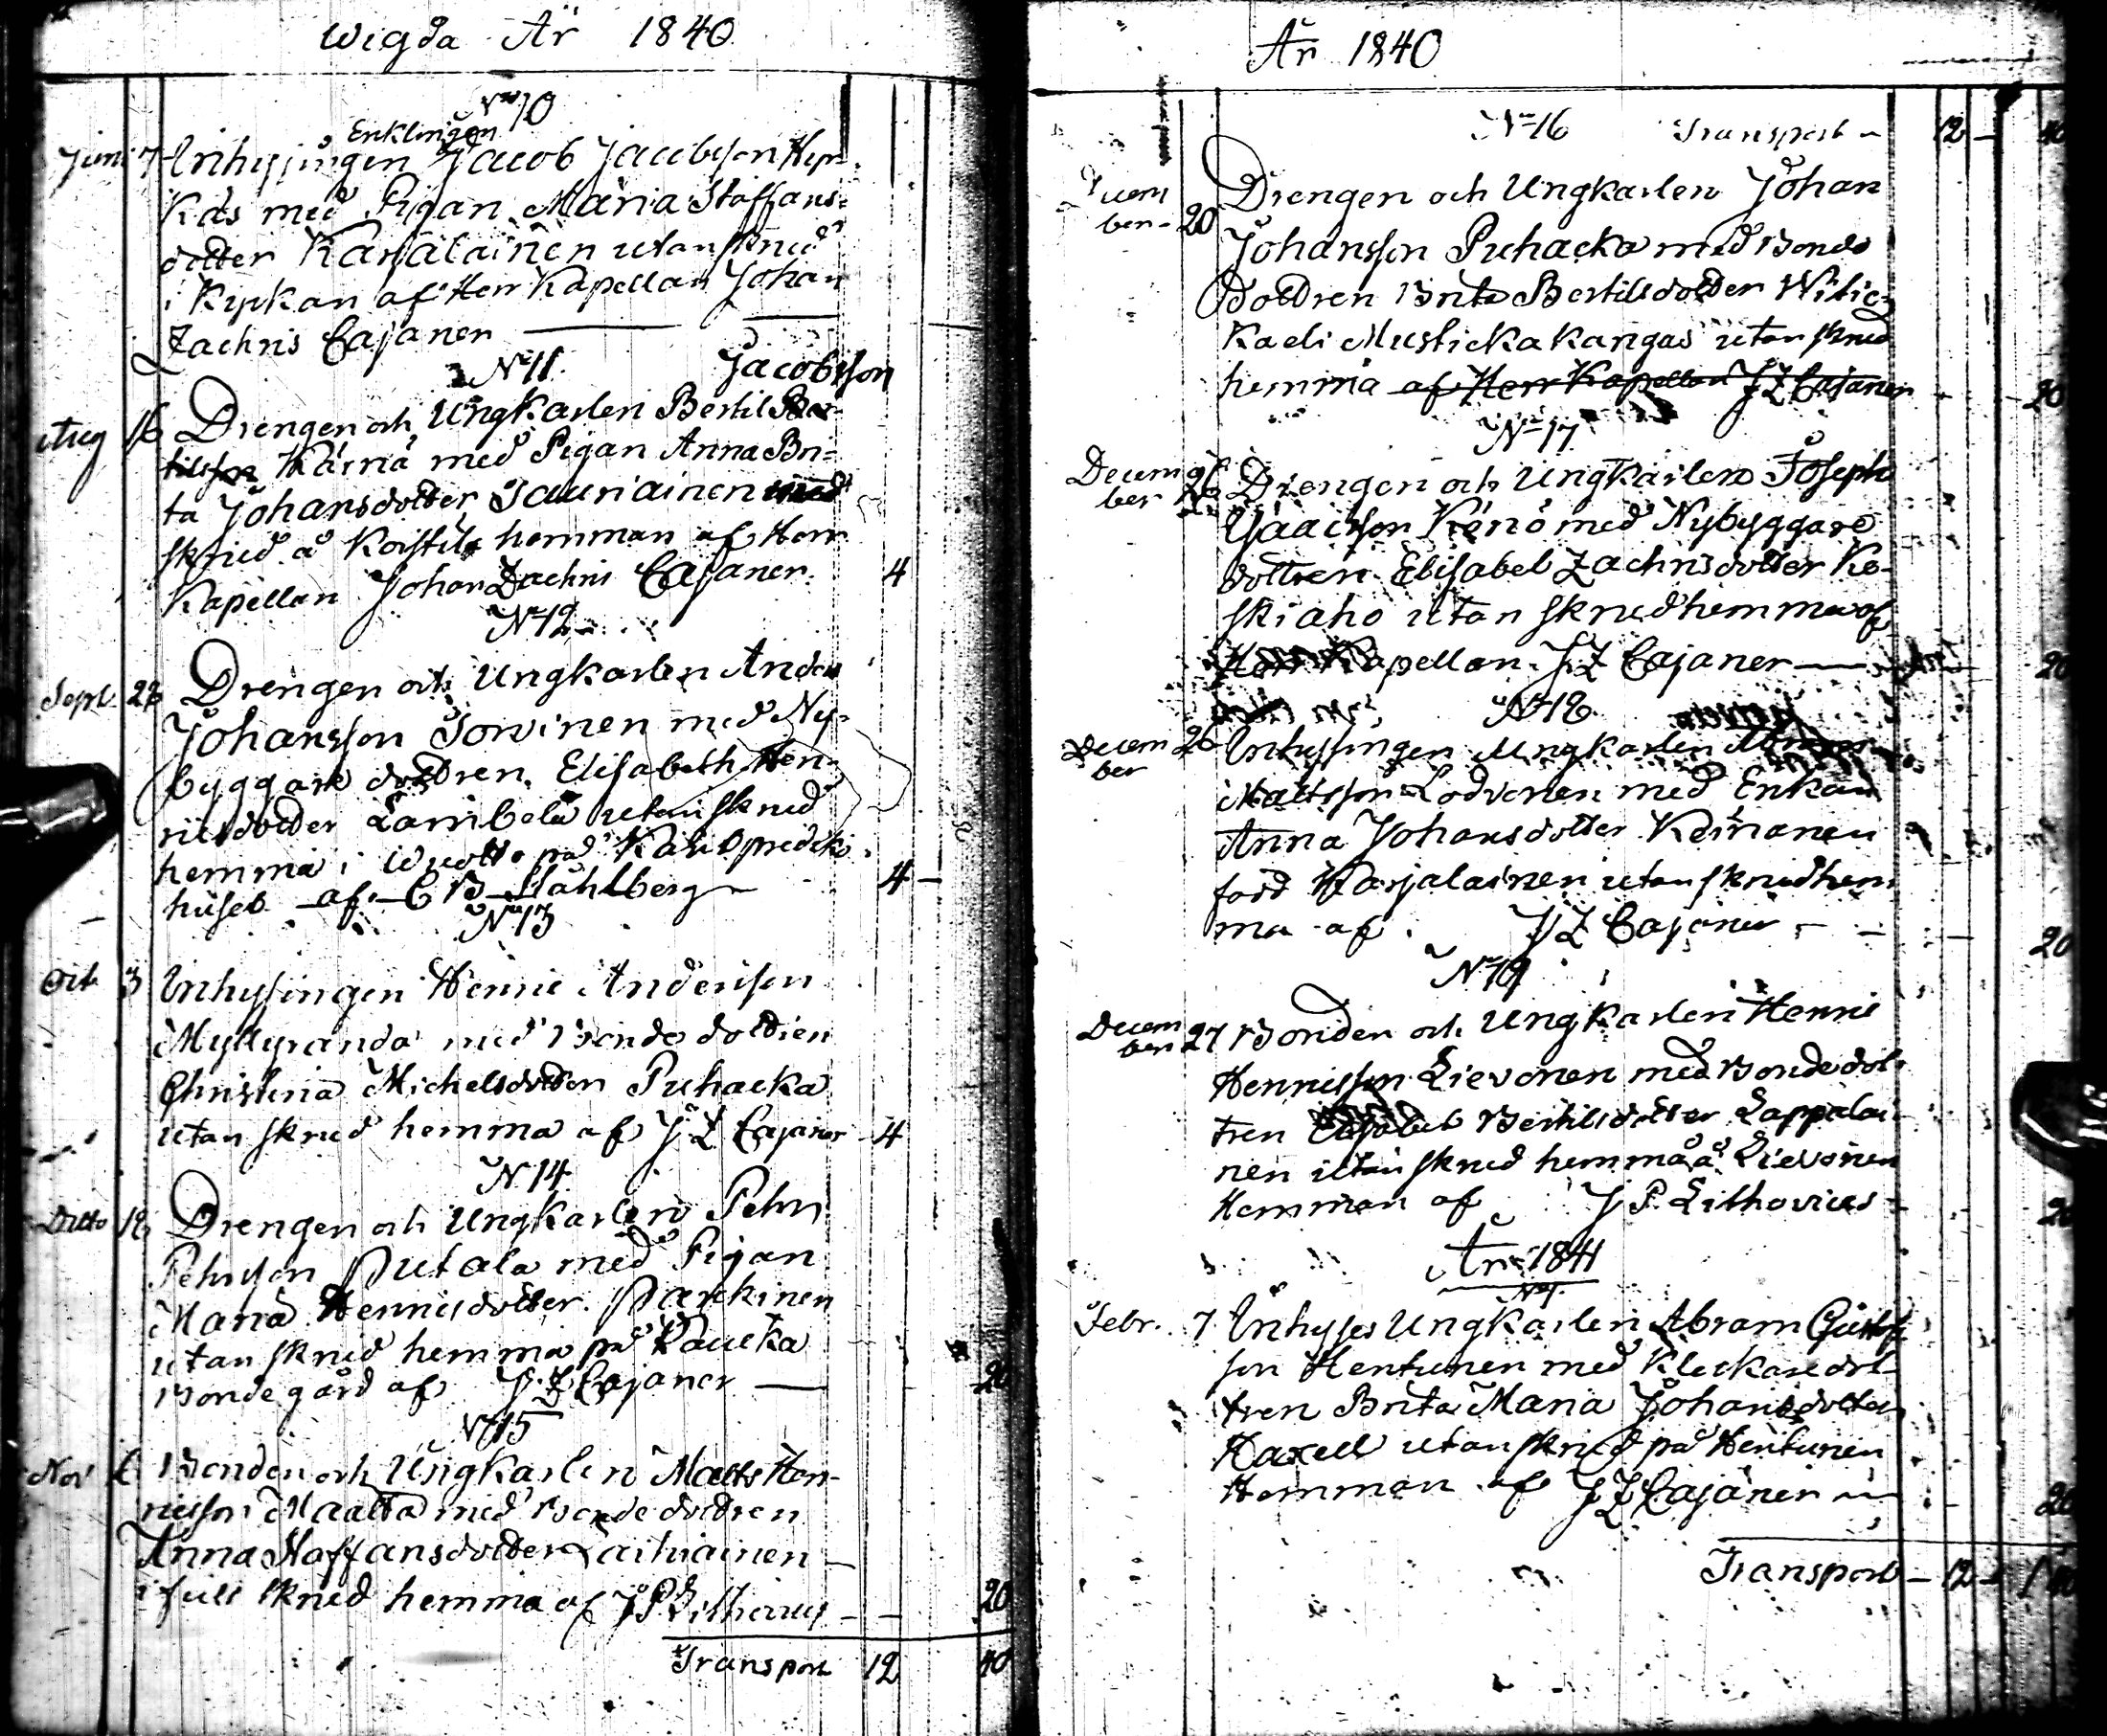 Wigda År 1840
No 10
Enklingen
Juni 7 Inhysingen Jacob Jacobsson
Käs med Pigan Maria Staffans-
dotter Karjalainen utan skrud
i Kyrkan af Herr Kapellan Johan
Zachris Cajaner
No 11 Jacobsson
Aug 16 Drengen och Ungkarlen Bertil Ber-
tilsson Kärnä med Pigan Anna Bri-
ta Johansdotter Tauriainen
skrud å Koistila hemman af Herr
Kapellan Johan Zachris Cajaner. 4
No 12
Sept. Drengen och Ungkarlen Anders
Johansson Torvinen med Ny-
byggare dottren Elisabeth Hen-
ricsdotter Lämbelä utan skrud
hemma i på
huset af C B Ståhlberg 4
No 13
Oct. 3 Inhysingen Henric Andersson
Myllyranda med Bonde dottren
Christina Michelsdotter Puhacka
utan skrud hemma af J. Z. Cajaner 4
N 14
Ditto 18 Drengen och Ungkarlen Pehr
Pehrsson Putala med Pigan
Maria Henricsdotter Parkinen
utan skrud hemma på
Bondegård af J. Z. Cajaner 20
No 15
Nov Bonden och Ungkarlen Matts Hen-
ricsson Määttä med Bonde dottren
Anna Staffansdotter Laihiainen
i full skrud hemma af J P Lithovius 20
Transport 12 40
År 1840
No 16 Transport 12 40
Decem
ber 20 Drengen och Ungkarlen Johan
Johansson Puhacka med Bonde
dottren Brita Bertilsdotter
Mustickakangas utan skrud
hemma af Herr Kapellan J Z Cajaner 20
No 17
Decem
ber 26 Drengen och Ungkarlen Joseph
Isacsson Kenö med Nybyggare
dottren Elisabet Zachrisdotter Ke-
skiaho utan skrud hemma af
Herr Kapellan J Z Cajaner 20
No 18
Decem
ber 26 Inhysingen Ungkarlen
Mattsson Lodvonen med Enkan
Anna Johansdotter Keinänen
född Karjalainen utan skrud hem
ma af J Z Cajaner 20
No 19
Decem
ber 27 Bonden och Ungkarlen Henric
Henricsson Lievonen med Bonde dot-
tren Elisabet Bertilsdotter Lappalai-
nen utan skrud hemma å Lievonen
Hemman af J P. Lithovius 20
År 1841
No 1.
Febr. 7 Inhyses Ungkarlen Abram Gustafs
son Hentunen med Klockare dot-
tren Brita Maria Johansdotter
Haxell utan skrud på Hentunen
Hemman af J Z Cajaner 20
Transport 12